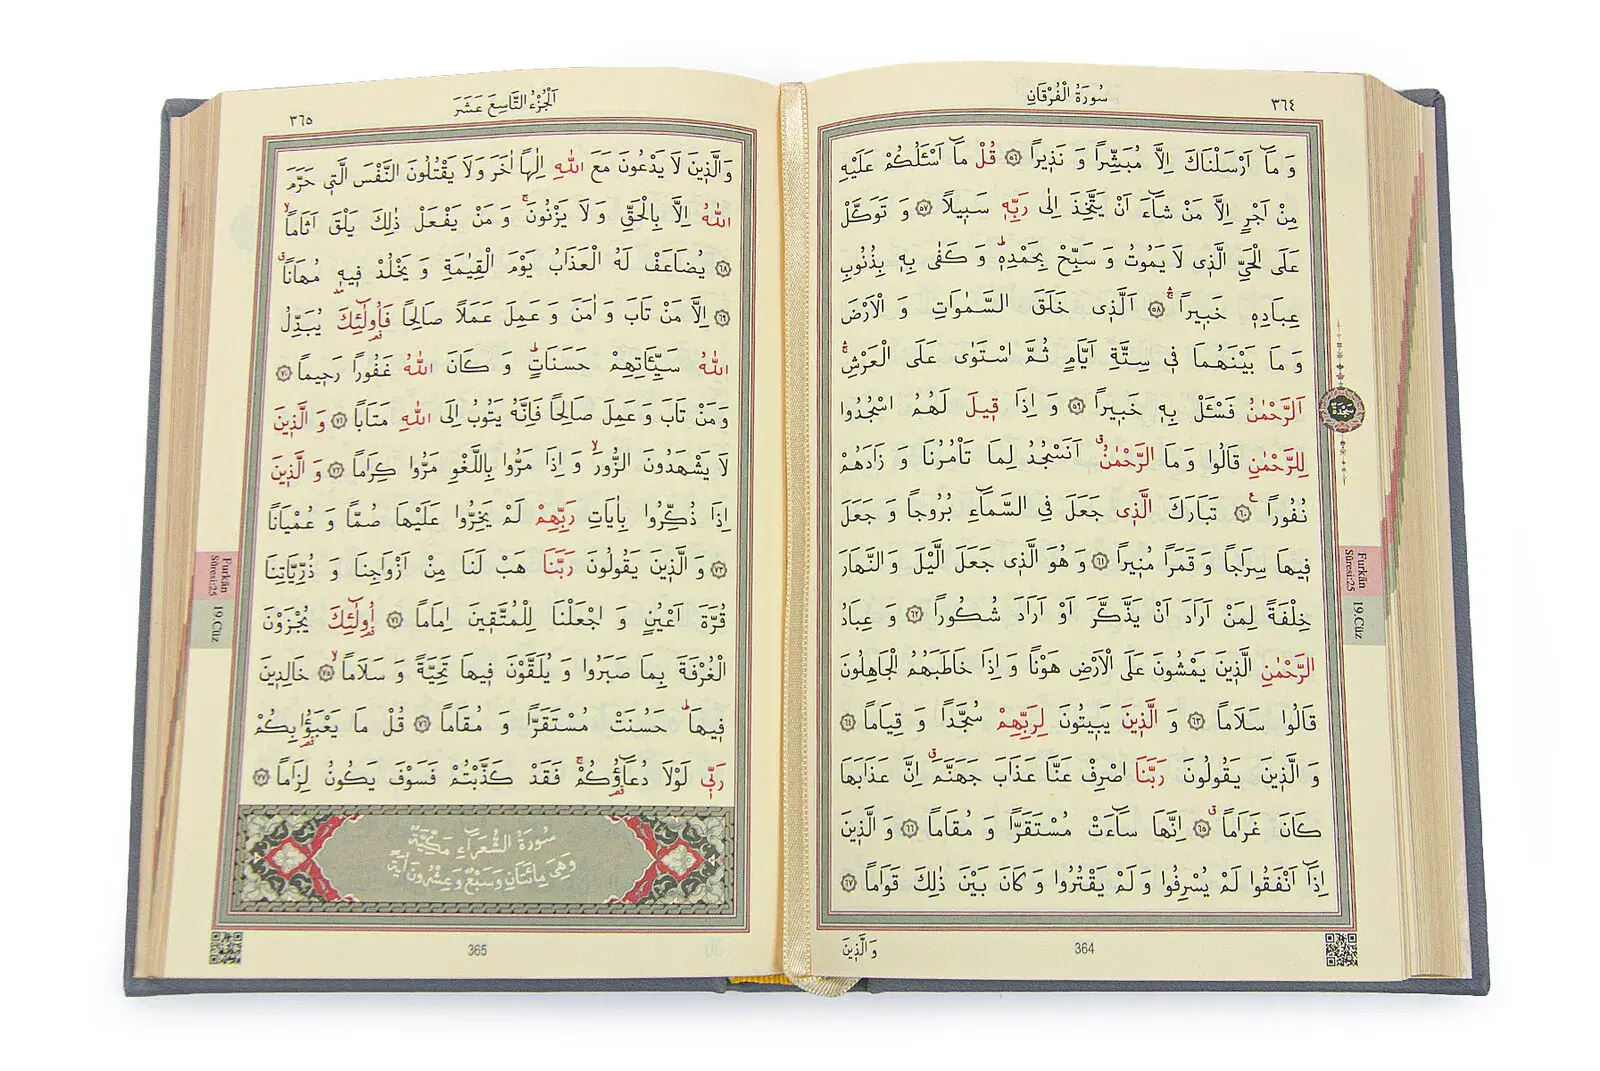 سُورَةُ الْفُرْقَانِ
٣٦٤
وَ مَٓا اَرْسَلْنَاكَ اِلَّا مُبَشِّرًا وَ نَذٖيرًا ﴿٥٦﴾ قُلْ مَٓا اَسْـَٔلُكُمْ عَلَيْهِ
مِنْ اَجْرٍ اِلَّا مَنْ شَٓاءَ اَنْ يَتَّخِذَ اِلٰى رَبِّهٖ سَبٖيلًا ﴿٥٧﴾ وَ تَوَكَّلْ
عَلَى الْحَيِّ الَّذٖى لَا يَمُوتُ وَ سَبِّحْ بِحَمْدِهٖؕ وَ كَفٰى بِهٖ بِذُنُوبِ
عِبَادِهٖ خَبٖيرًاۚ ﴿٥٨﴾ اَلَّذٖى خَلَقَ السَّمٰوَاتِ وَ الْاَرْضَ
وَ مَا بَيْنَهُمَا فٖى سِتَّةِ اَيَّامٍ ثُمَّ اسْتَوٰى عَلَى الْعَرْشِۚ
اَلرَّحْمٰنُ فَسْـَٔلْ بِهٖ خَبٖيرًا ﴿٥٩﴾ وَ اِذَا قٖيلَ لَهُمُ اسْجُدُوا
لِلرَّحْمٰنِ قَالُوا وَ مَا الرَّحْمٰنُۗ اَنَسْجُدُ لِمَا تَاْمُرُنَا وَ زَادَهُمْ
نُفُورًا ﴿٦٠﴾ تَبَارَكَ الَّذٖى جَعَلَ فِى السَّمَٓاءِ بُرُوجًا وَ جَعَلَ
فٖيهَا سِرَاجًا وَ قَمَرًا مُنٖيرًا ﴿٦١﴾ وَ هُوَ الَّذٖى جَعَلَ الَّيْلَ وَ النَّهَارَ
خِلْفَةً لِمَنْ اَرَادَ اَنْ يَذَّكَّرَ اَوْ اَرَادَ شُكُورًا ﴿٦٢﴾ وَ عِبَادُ
الرَّحْمٰنِ الَّذٖينَ يَمْشُونَ عَلَى الْاَرْضِ هَوْنًا وَ اِذَا خَاطَبَهُمُ الْجَاهِلُونَ
قَالُوا سَلَامًا ﴿٦٣﴾ وَ الَّذٖينَ يَبٖيتُونَ لِرَبِّهِمْ سُجَّدًا وَ قِيَامًا ﴿٦٤﴾
وَ الَّذٖينَ يَقُولُونَ رَبَّنَا اصْرِفْ عَنَّا عَذَابَ جَهَنَّمَۗ اِنَّ عَذَابَهَا
كَانَ غَرَامًاۗ ﴿٦٥﴾ اِنَّهَا سَٓاءَتْ مُسْتَقَرًّا وَ مُقَامًا ﴿٦٦﴾ وَ الَّذٖينَ
اِذَٓا اَنْفَقُوا لَمْ يُسْرِفُوا وَ لَمْ يَقْتُرُوا وَ كَانَ بَيْنَ ذٰلِكَ قَوَامًا ﴿٦٧﴾
وَ الَّذٖينَ
364
سجدة
Furkân
Sûresi:25
19.Cüz
اَلْجُزْءُ التَّاسِعَ عَشَرَ
٣٦٥
وَ الَّذٖينَ لَا يَدْعُونَ مَعَ اللّٰهِ اِلٰهًا اٰخَرَ وَ لَا يَقْتُلُونَ النَّفْسَ الَّتٖى حَرَّمَ
اللّٰهُ اِلَّا بِالْحَقِّ وَ لَا يَزْنُونَۚ وَ مَنْ يَفْعَلْ ذٰلِكَ يَلْقَ اَثَامًاۙ
﴿٦٨﴾ يُضَاعَفْ لَهُ الْعَذَابُ يَوْمَ الْقِيٰمَةِ وَ يَخْلُدْ فٖيهٖ مُهَانًاۗ
﴿٦٩﴾ اِلَّا مَنْ تَابَ وَ اٰمَنَ وَ عَمِلَ عَمَلًا صَالِحًا فَاُولٰٓئِكَ يُبَدِّلُ
اللّٰهُ سَيِّـَٔاتِهِمْ حَسَنَاتٍؕ وَ كَانَ اللّٰهُ غَفُورًا رَحٖيمًا ﴿٧٠﴾
وَ مَنْ تَابَ وَ عَمِلَ صَالِحًا فَاِنَّهُ يَتُوبُ اِلَى اللّٰهِ مَتَابًا ﴿٧١﴾ وَ الَّذٖينَ
لَا يَشْهَدُونَ الزُّورَۙ وَ اِذَا مَرُّوا بِاللَّغْوِ مَرُّوا كِرَامًا ﴿٧٢﴾ وَ الَّذٖينَ
اِذَا ذُكِّرُوا بِاٰيَاتِ رَبِّهِمْ لَمْ يَخِرُّوا عَلَيْهَا صُمًّا وَ عُمْيَانًا
﴿٧٣﴾ وَ الَّذٖينَ يَقُولُونَ رَبَّنَا هَبْ لَنَا مِنْ اَزْوَاجِنَا وَ ذُرِّيَّاتِنَا
قُرَّةَ اَعْيُنٍ وَ اجْعَلْنَا لِلْمُتَّقٖينَ اِمَامًا ﴿٧٤﴾ اُولٰٓئِكَ يُجْزَوْنَ
الْغُرْفَةَ بِمَا صَبَرُوا وَ يُلَقَّوْنَ فٖيهَا تَحِيَّةً وَ سَلَامًاۙ ﴿٧٥﴾ خَالِدٖينَ
فٖيهَاؕ حَسُنَتْ مُسْتَقَرًّا وَ مُقَامًا ﴿٧٦﴾ قُلْ مَا يَعْبَؤُا بِكُمْ
رَبّٖى لَوْلَا دُعَٓاؤُكُمْۚ فَقَدْ كَذَّبْتُمْ فَسَوْفَ يَكُونُ لِزَامًا ﴿٧٧﴾
سُورَةُ الشُّعَرَاءِ مَكِّيَّةٌ
وَهِىَ مِائَتَانِ وَسَبْعٌ وَعِشْرُونَ اٰيَةً
365
Furkân
Sûresi:25
19.Cüz